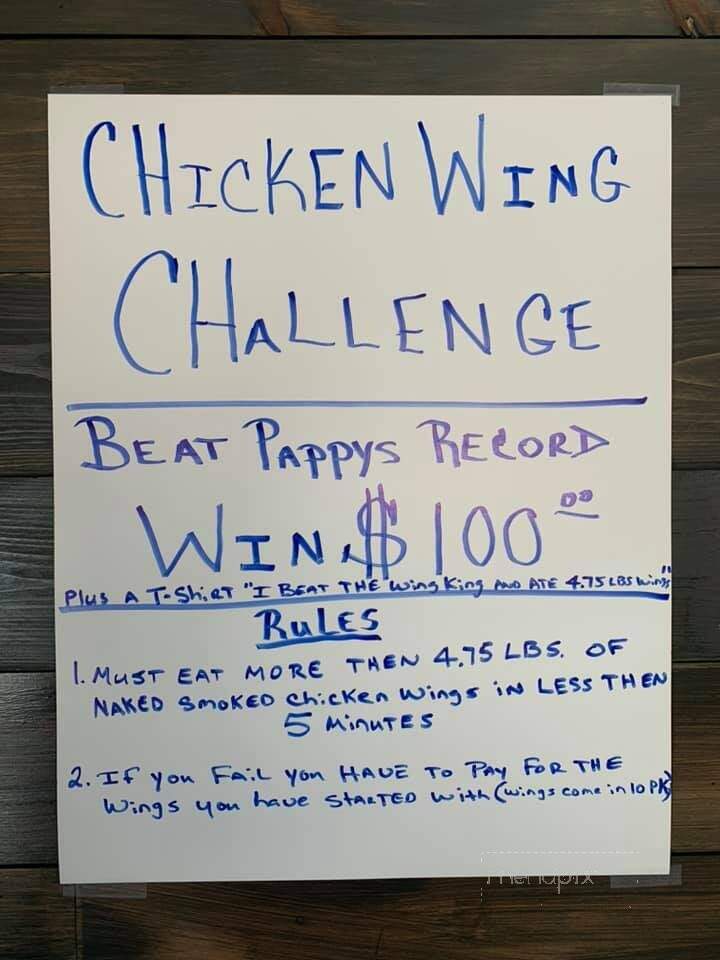 CHICKEN WING
CHALLENGE
BEAT PAPPYS RECORD
WIN $100.00
Plus A T-Shirt "I BEAT THE Wing King AND ATE 4.75 LBS Wings"
RULES
1. MUST EAT MORE THEN 4.75 LBS. OF
NAKED SMOKED Chicken Wings IN LESS THEN
5 MINUTES
2. IF you FAIL you HAVE TO PAY FOR THE
Wings you have STARTED with (wings come in 10 PK)
menupix